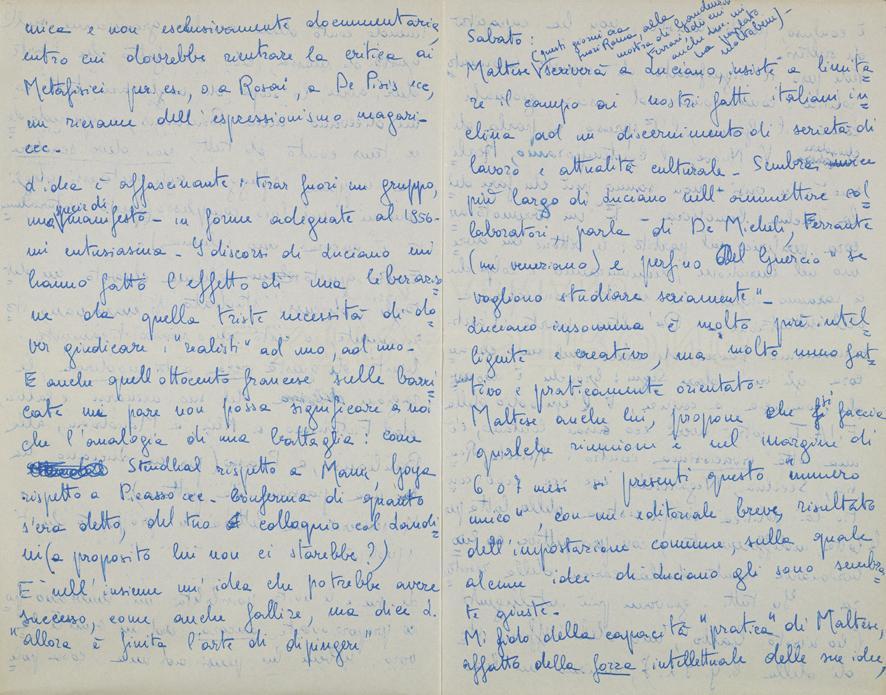 mica e non esclusivamente documentaria,
entro cui dovrebbe rientrare la critica ai
Metafisici per es, o a Rosai, a De Pisis ecc,
un riesame dell'espressionismo magari-
ecc-
L'idea è affascinante: tirar fuori un gruppo,
una specie di manifesto - in forme adeguate al 1956-
mi entusiasma - I discorsi di Luciano mi
hanno fatto l'effetto di una liberazio=
ne da quella triste necessità di do=
ver giudicare i "realisti" ad uno, ad uno-
E anche quell'ottocento francese sulle barri=
cate mi pare non possa significare a noi
che l'analogia di una battaglia: come
Stendhal rispetto a Mann, Goya
rispetto a Picasso ecc - Conferma di quanto
s'era detto, del tuo colloquio col Landi=
ni (a proposito lui non ci starebbe?)
E' nell'insieme un'idea che potrebbe avere
successo, come anche fallire, ma dici L.
"allora è finita l'arte di dipingere"
Sabato:
(questi giorni era
fuori Roma, alla
mostra di
anche lui mi
ha
Maltese scriverà a Luciano, insiste a limita=
re il campo ai nostri fatti italiani in=
clina ad un discernimento di serietà di
lavoro e attualità culturale - Sembra
più largo di Luciano nell'ammettere col=
laboratori, parla di De Micheli, Ferrante
(un veneziano) e perfino Del Guercio "se
vogliono studiare seriamente"-
Luciano insomma è molto più intel=
ligente e creativo, ma molto meno fat=
tivo e praticamente orientato.
Maltese anche lui, propone che si faccia
qualche riunione e nel margine di
6 o 7 mesi si presenti questo "numero
unico", con un editoriale breve, risultato
dell'impostazione comune sulla quale
alcune idee di Luciano gli sono sembra=
te giuste-
Mi fido della capacità "pratica" di Maltese,
affatto della forza intellettuale delle sue idee,